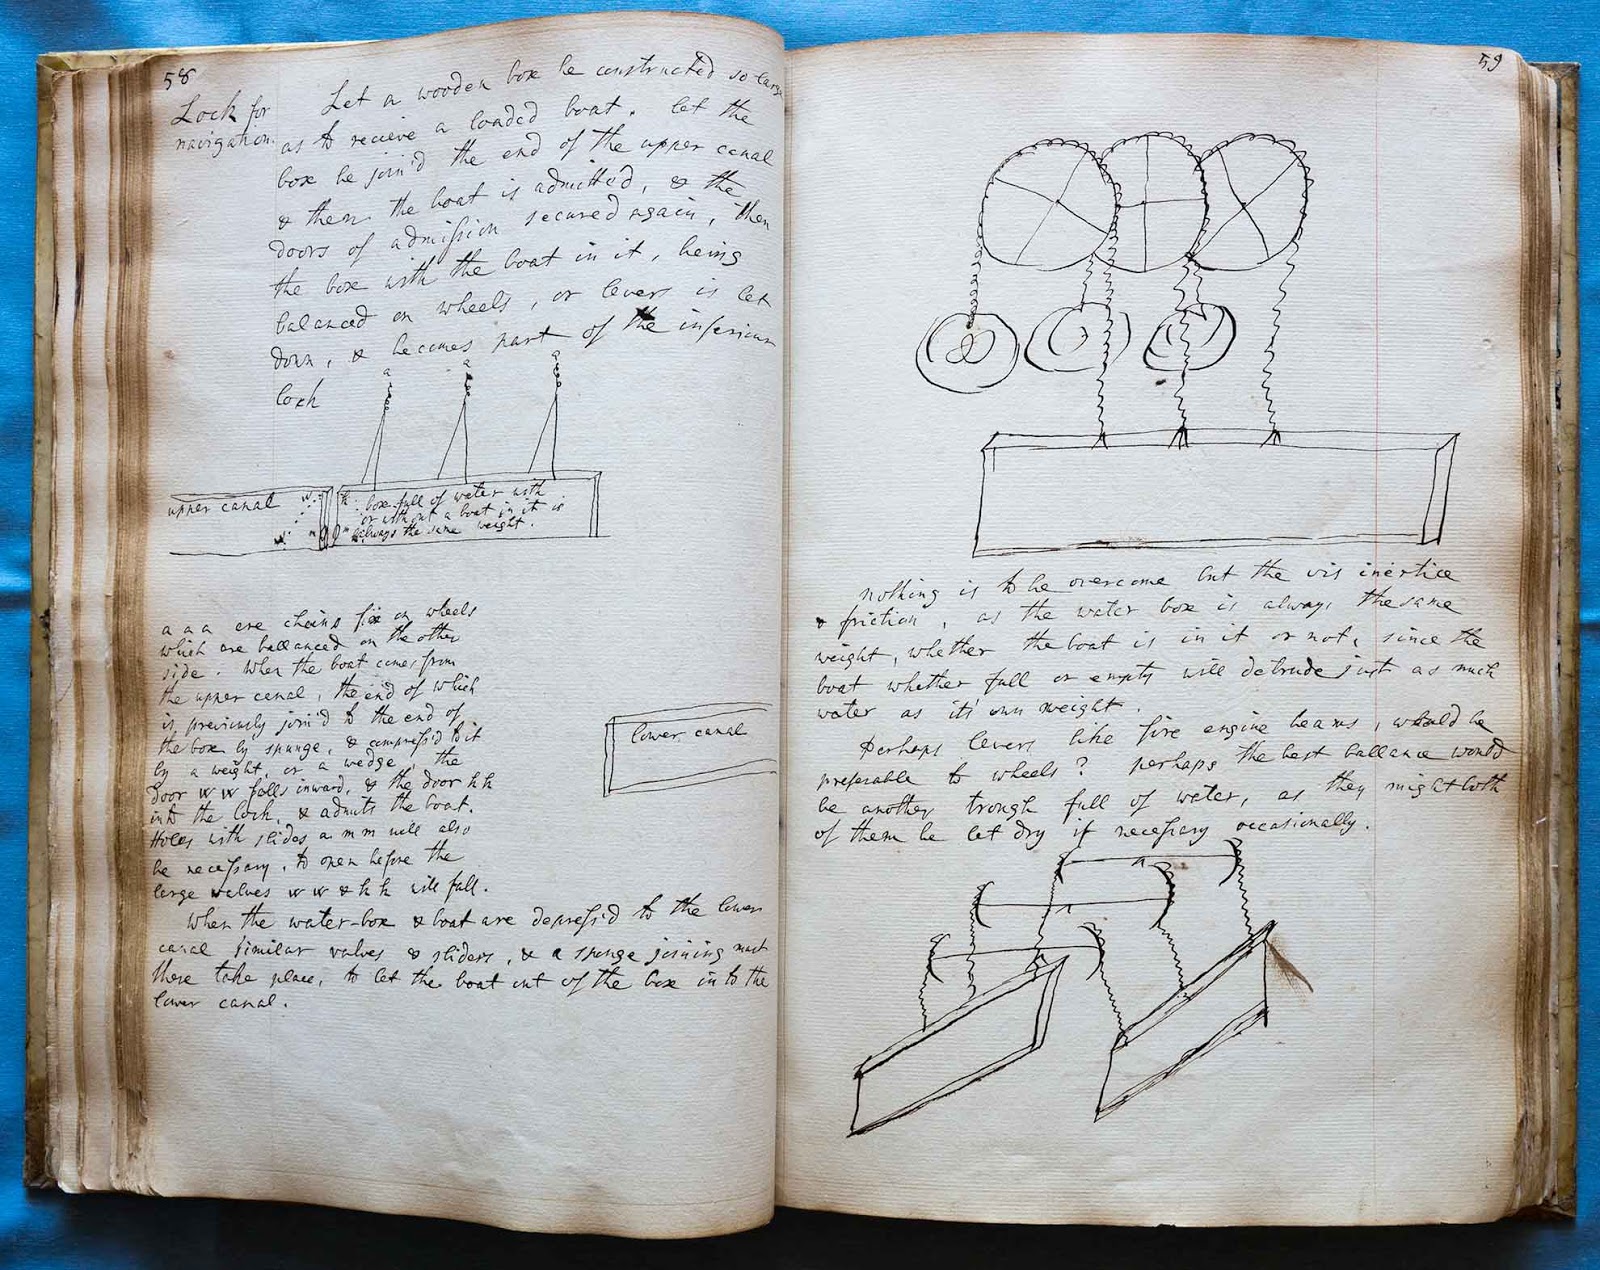 58
Lock for
navigation.
Let a wooden box be constructed so large
as to recieve a loaded boat. Let the
box be join'd the end of the upper canal
& then the boat is admitted, & the
doors of admission secured again, then
the box with the boat in it, being
balanced on wheels, or levers is let
down, & becomes part of the inferiour
lock
a a a
upper canal
w
h
box full of water with
or without a boat in it is
always the same weight.
w
m
m
a a a are chains fix on wheels
which are ballanced on the other
side. When the boat comes from
the upper canal, the end of which
is previously join'd to the end of
the box by spunge, & compress'd to it
by a weight, or a wedge, the
door w w falls inward, & the door h h
into the lock, & admits the boat.
Holes with slides a m m will also
be necessary, to open before the
large valves w w & h h will fall.
lower canal
When the water-box & boat are depress'd to the lower
canal similar valves & sliders, & a spunge joining must
there take place, to let the boat out of the box in to the
lower canal.
59
nothing is to be overcome but the vis inertiæ
& friction, as the water box is always the same
weight, whether the boat is in it or not, since the
boat whether full or empty will detrude just as much
water as it's own weight.
Perhaps levers like fire engine beams, would be
preferable to wheels? perhaps the best ballance would
be another trough full of water, as they might both
of them be let dry if necessary occasionally.